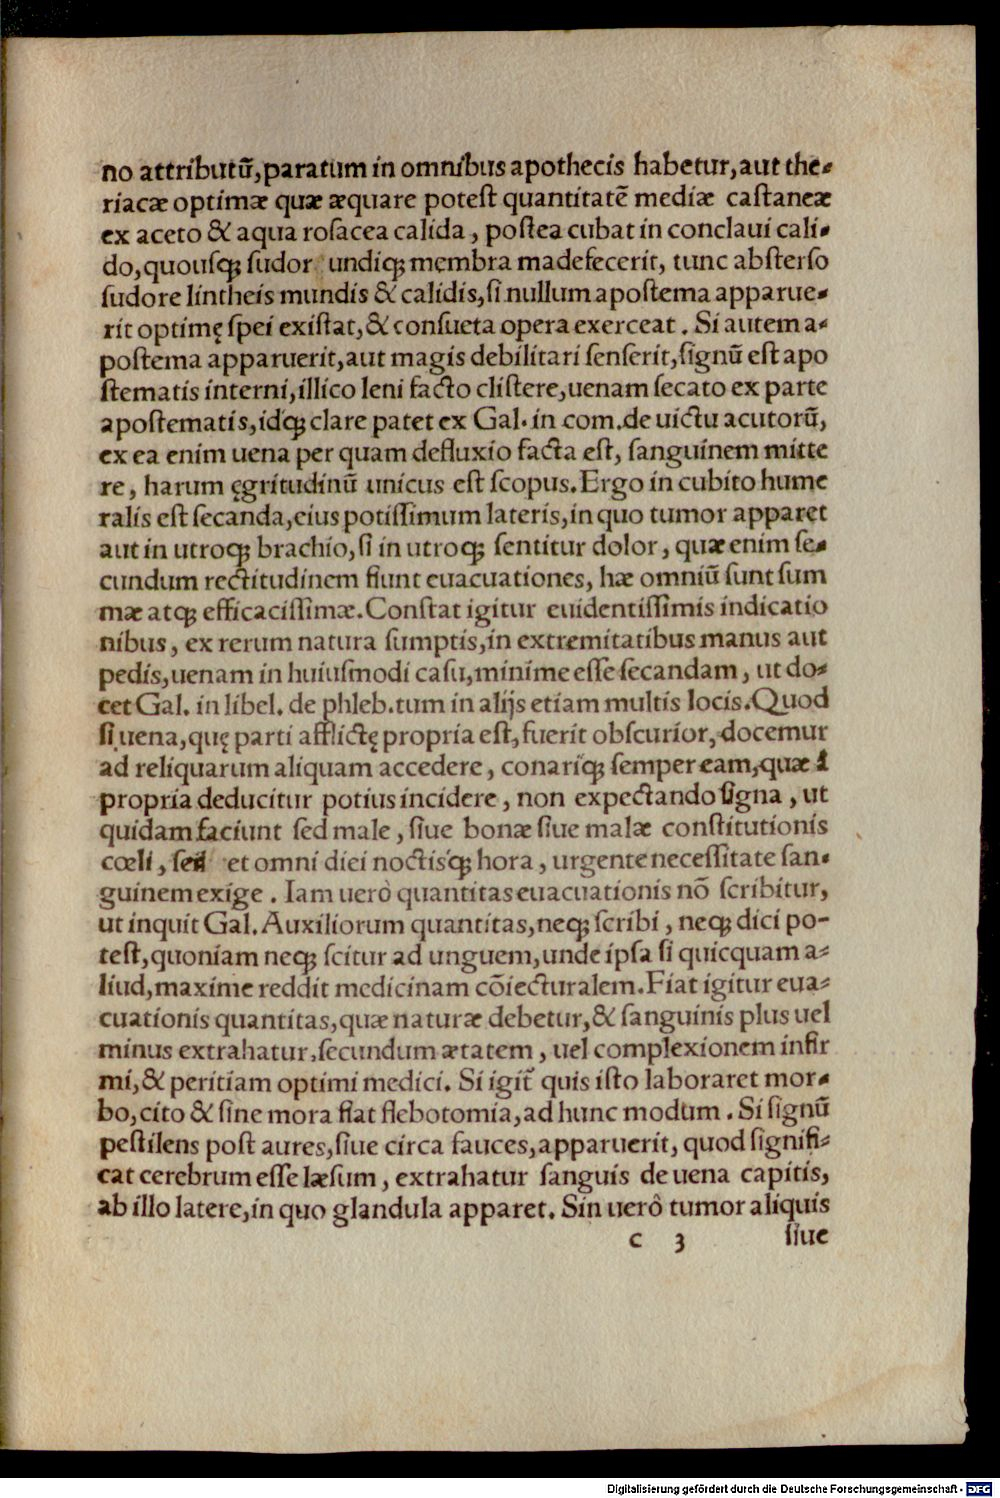 no attributū, paratum in omnibus apothecis habetur, aut the-
riacæ optimæ quæ æquare potest quantitatē mediæ castaneæ
ex aceto & aqua rosacea calida, postea cubat in conclaui cali-
do, quousq; sudor undiq; membra madefecerit, tunc absterso
sudore lintheis mundis & calidis, si nullum apostema apparue-
rit optimę spei existat, & consueta opera exerceat. Si autem a-
postema apparuerit, aut magis debilitari senserit, signū est apo
stematis interni, illico leni facto clistere, uenam secato ex parte
apostematis, idq; clare patet ex Gal. in com. de uictu acutorū,
ex ea enim uena per quam defluxio facta est, sanguinem mitte
re, harum ęgritudinū unicus est scopus. Ergo in cubito hume
ralis est secanda, eius potissimum lateris, in quo tumor apparet
aut in utroq; brachio, si in utroq; sentitur dolor, quæ enim se-
cundum rectitudinem fiunt euacuationes, hæ omniū sunt sum
mæ atq; efficacissimæ. Constat igitur euidentissimis indicatio
nibus, ex rerum natura sumptis, in extremitatibus manus aut
pedis, uenam in huiusmodi casu, minime esse secandam, ut do-
cet Gal. in libel. de phleb. tum in alijs etiam multis locis. Quod
si uena, quę parti afflictę propria est, fuerit obscurior, docemur
ad reliquarum aliquam accedere, conariq; semper eam, quæ à
propria deducitur potius incidere, non expectando signa, ut
quidam faciunt sed male, siue bonæ siue malæ constitutionis
cœli, sed et omni diei noctisq; hora, urgente necessitate san-
guinem exige. Iam uerò quantitas euacuationis nō scribitur,
ut inquit Gal. Auxiliorum quantitas, neq; scribi, neq; dici po-
test, quoniam neq; scitur ad unguem, unde ipsa si quicquam a-
liud, maxime reddit medicinam cōiecturalem. Fiat igitur eua-
cuationis quantitas, quæ naturæ debetur, & sanguinis plus uel
minus extrahatur, secundum ætatem, uel complexionem infir
mi, & peritiam optimi medici. Si igit̄ quis isto laboraret mor-
bo, cito & sine mora fiat flebotomia, ad hunc modum. Si signū
pestilens post aures, siue circa fauces, apparuerit, quod signifi-
cat cerebrum esse læsum, extrahatur sanguis de uena capitis,
ab illo latere, in quo glandula apparet. Sin uerô tumor aliquis
c 3 siue
Digitalisierung gefördert durch die Deutsche Forschungsgemeinschaft - DFG